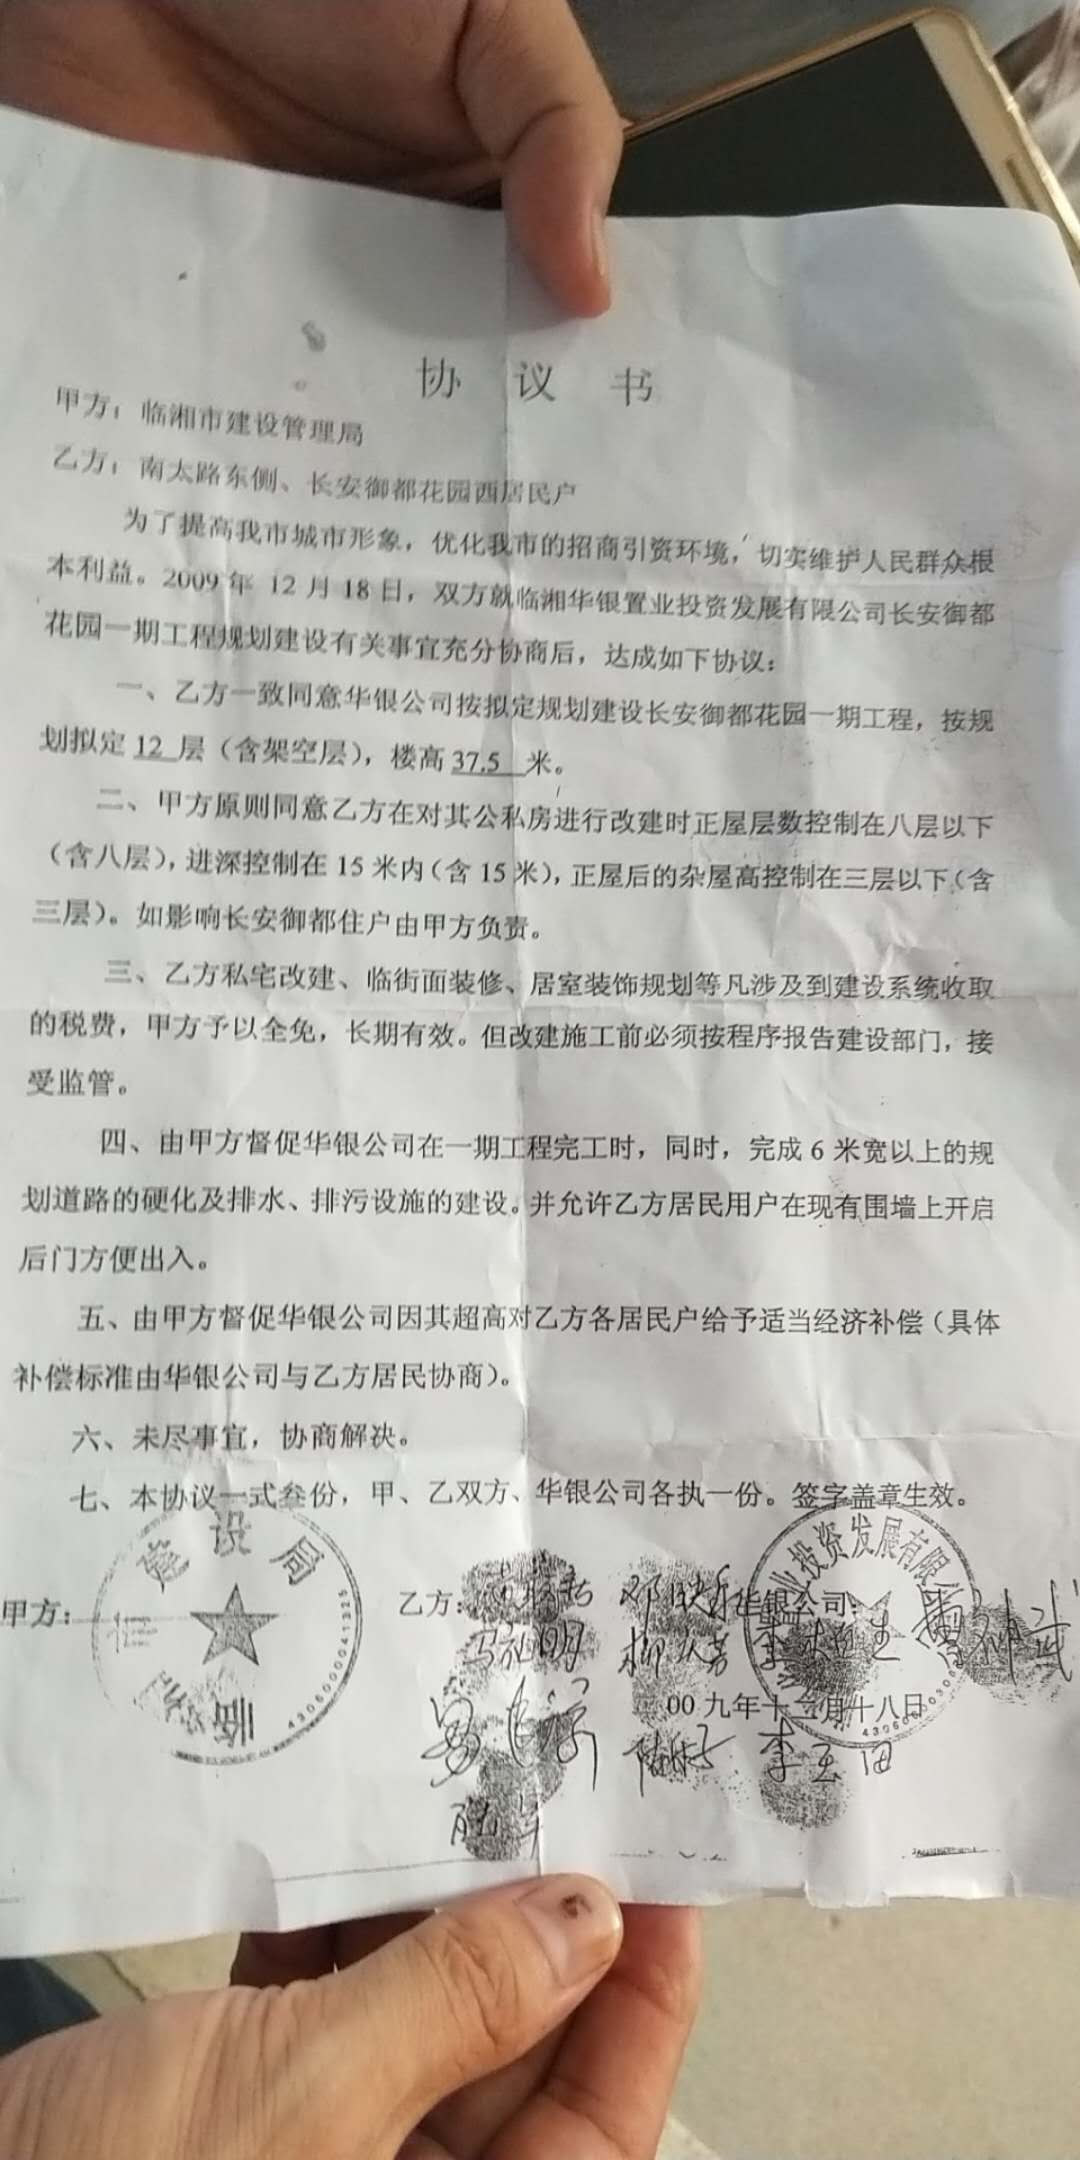 协 议 书
甲方：临湘市建设管理局
乙方：南太路东侧、长安御都花园西居民户
为了提高我市城市形象，优化我市的招商引资环境，切实维护人民群众根
本利益。2009年 12月18日，双方就临湘华银置业投资发展有限公司长安御都
花园一期工程规划建设有关事宜充分协商后，达成如下协议：
一、乙方一致同意华银公司按拟定规划建设长安御都花园一期工程，按规
划拟定 12 层（含架空层），楼高 37.5 米。
二、甲方原则同意乙方在对其公私房进行改建时正屋层数控制在八层以下
（含八层），进深控制在15米内（含15米），正屋后的杂屋高控制在三层以下（含
三层）。如影响长安御都住户由甲方负责。
三、乙方私宅改建、临街面装修、居室装饰规划等凡涉及到建设系统收取
的税费，甲方予以全免，长期有效。但改建施工前必须按程序报告建设部门，接
受监管。
四、由甲方督促华银公司在一期工程完工时，同时，完成6米宽以上的规
划道路的硬化及排水、排污设施的建设。并允许乙方居民用户在现有围墙上开启
后门方便出入。
五、由甲方督促华银公司因其超高对乙方各居民户给予适当经济补偿（具体
补偿标准由华银公司与乙方居民协商）。
六、未尽事宜，协商解决。
七、本协议一式叁份，甲、乙双方、华银公司各执一份。签字盖章生效。
临 市建设局
业投资发展有限
甲方： 乙方： 华银公司：
00九年十二月十八日
李玉田